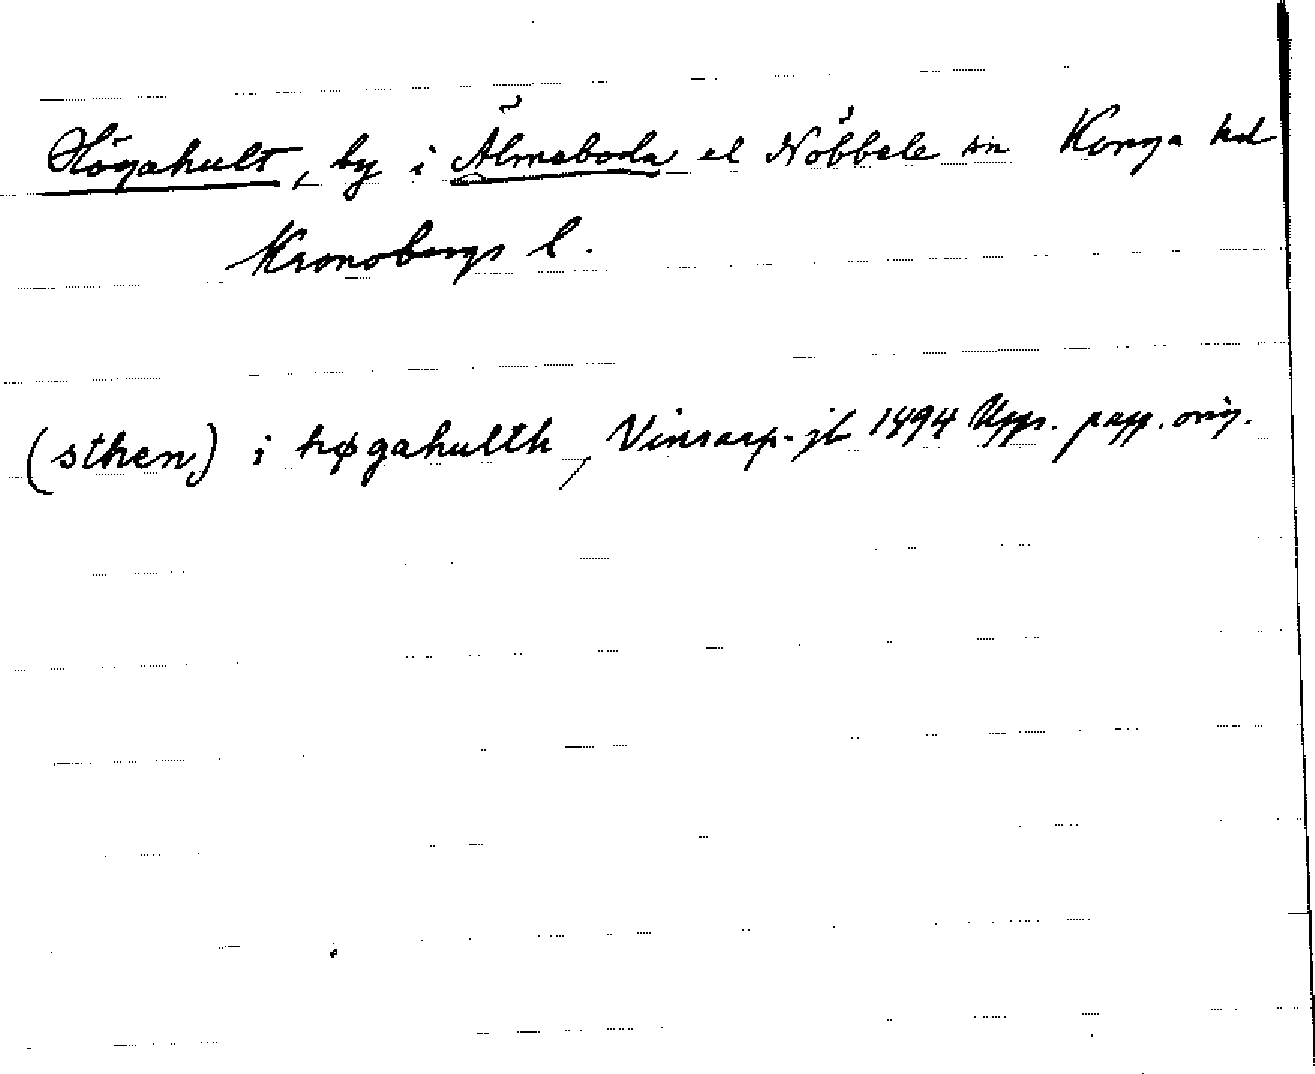 Högahult, by i Älmeboda el Nöbbele sn Konga hd
Kronobergs l.
(sthen) i høgahulth, Vinsarp. jb 1494 Upps. papp. orig.